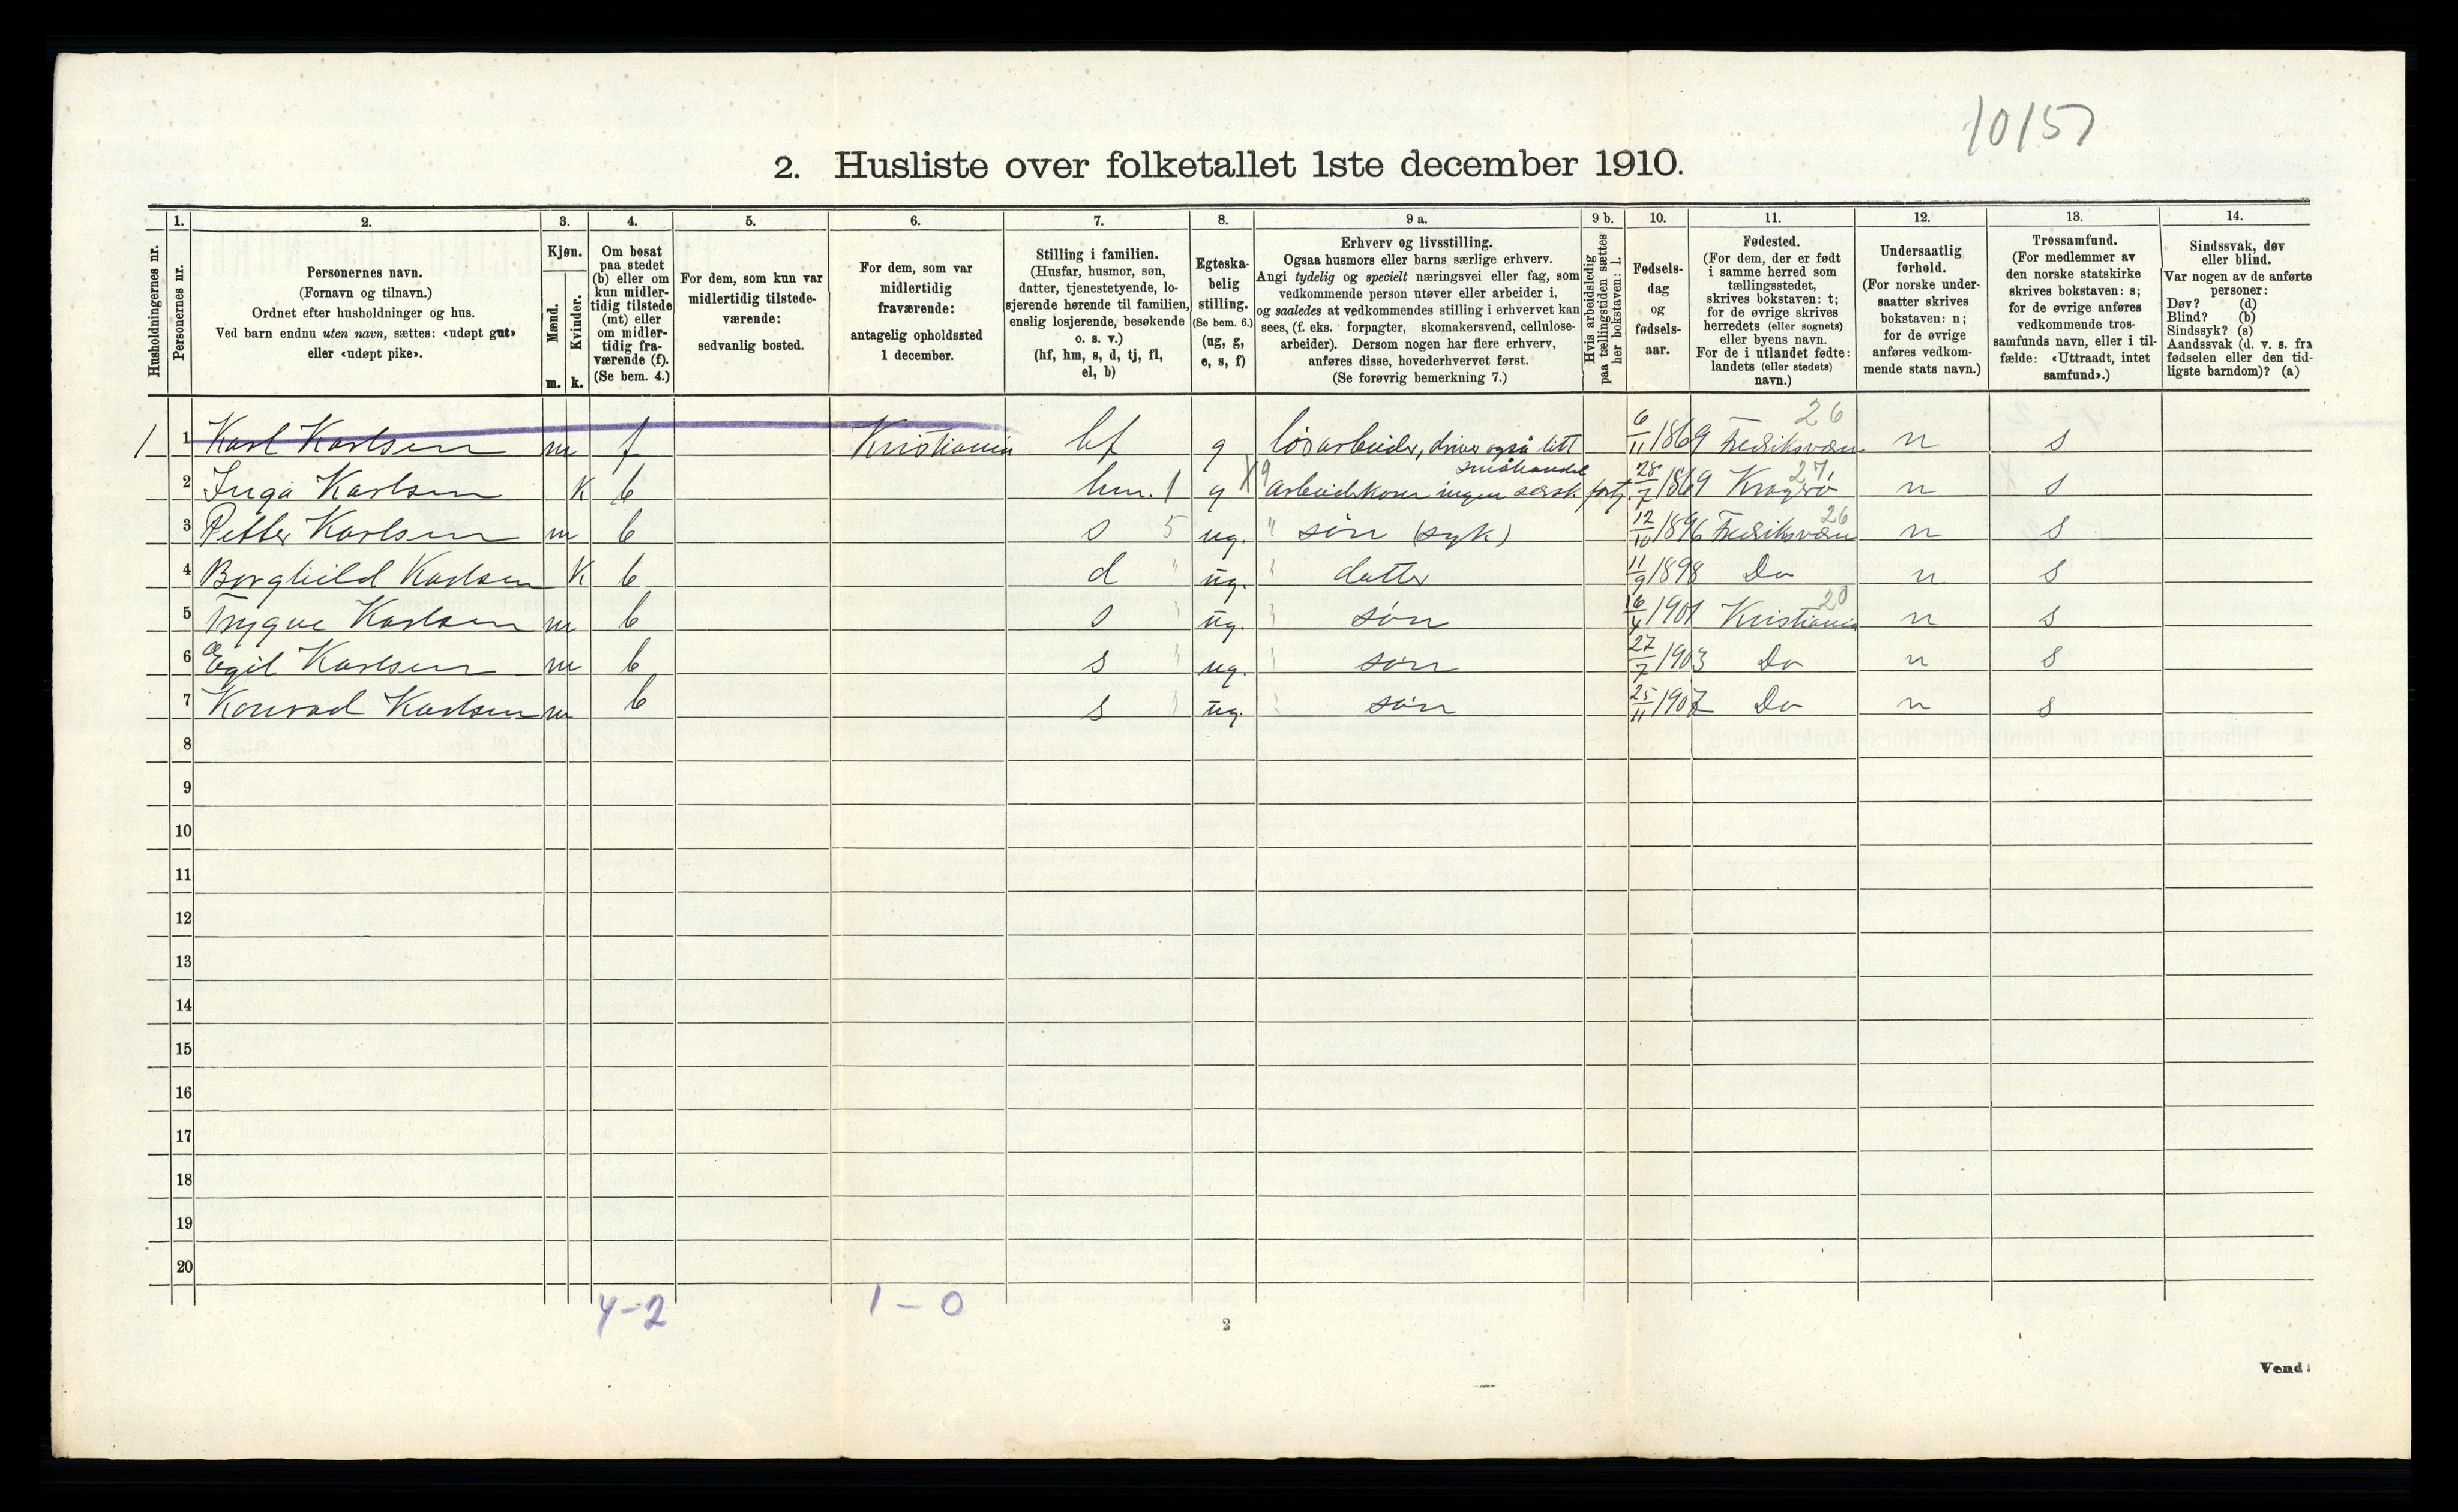 10157
2. Husliste over folketallet 1ste december 1910.
Husholdningernes nr.
1. Personernes nr.
2. Personernes navn.
(Fornavn og tilnavn.)
Ordnet efter husholdninger og hus.
Ved barn endnu uten navn, sættes: «udøpt gut»
eller «udøpt pike».
3. Kjøn.
Mænd. Kvinder.
m. k.
4. Om bosat
paa stedet
(b) eller om
kun midler-
tidig tilstede
(mt) eller
om midler-
tidig fra-
værende (f).
(Se bem. 4.)
5. For dem, som kun var
midlertidig tilstede-
værende:
sedvanlig bosted.
6. For dem, som var
midlertidig
fraværende:
antagelig opholdssted
1 december.
7. Stilling i familien.
(Husfar, husmor, søn,
datter, tjenestetyende, lo-
sjerende hørende til familien,
enslig losjerende, besøkende
o. s. v.)
(hf, hm, s, d, tj, fl,
el, b)
8. Egteska-
belig
stilling.
(Se bem. 6.)
(ug, g,
e, s, f)
9 a. Erhverv og livsstilling.
Ogsaa husmors eller barns særlige erhverv.
Angi tydelig og specielt næringsvei eller fag, som
vedkommende person utøver eller arbeider i,
og saaledes at vedkommendes stilling i erhvervet kan
sees, (f. eks. forpagter, skomakersvend, cellulose-
arbeider). Dersom nogen har flere erhverv,
anføres disse, hovederhvervet først.
(Se forøvrig bemerkning 7.)
9 b. Hvis arbeidsledig
paa tællingstiden sættes
her bokstaven: l.
10. Fødsels-
dag
og
fødsels-
aar.
11. Fødested.
(For dem, der er født
i samme herred som
tællingsstedet,
skrives bokstaven: t;
for de øvrige skrives
herredets (eller sognets)
eller byens navn.
For de i utlandet fødte:
landets (eller stedets)
navn.)
12. Undersaatlig
forhold.
(For norske under-
saatter skrives
bokstaven: n;
for de øvrige
anføres vedkom-
mende stats navn.)
13. Trossamfund.
(For medlemmer av
den norske statskirke
skrives bokstaven: s;
for de øvrige anføres
vedkommende tros-
samfunds navn, eller i til-
fælde: «Uttraadt, intet
samfund».)
14. Sindssvak, døv
eller blind.
Var nogen av de anførte
personer:
Døv? (d)
Blind? (b)
Sindssyk? (s)
Aandssvak (d. v. s. fra
fødselen eller den tid-
ligste barndom)? (a)
1 1 Karl Karlsen m f Kristiania hf g løsarbeider, driver også litt småhandel 6/11 1869 Fredriksværn 26 n s
2 Inga Karlsen K b hm. 1 g X9 arbeiderkone ingen særsk. fortj. 28/7 1869 Kragerø 27 n s
3 Petter Karlsen m b s 5 ug. " søn (syk) 12/10 1896 Fredriksværn 26 n s
4 Borghild Karlsen K b d " ug. " datter 11/9 1898 Do n s
5 Trygve Karlsen m b s " ug. " søn 16/4 1901 Kristiania 20 n s
6 Egil Karlsen m b s " ug. " søn 27/7 1903 Do n s
7 Konrad Karlsen m b s " ug. " søn 25/11 1907 Do n s
8
9
10
11
12
13
14
15
16
17
18
19
20
4-2 1-0
2
Vend!